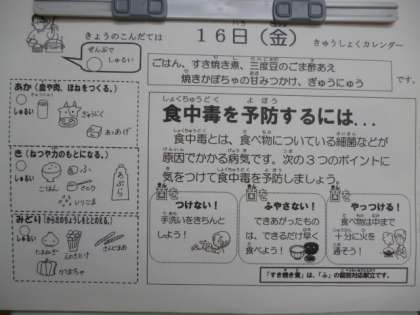 きょうのこんだては
16日（金）
きゅうしょくカレンダー
ぜんぶで
しゅるい
ごはん、すき焼き煮、三度豆のごま酢あえ
焼きかぼちゃの甘みつかけ、ぎゅうにゅう
です。
あか（血や肉、ほねをつくる。）
しゅるい
ぎゅうにく
あつあげ
き（ねつや力のもとになる。）
しゅるい
ごはん
ふ
さとう
あぶら
みどり
しゅるい
たまねぎ
えのきたけ
さんどまめ
かぼちゃ
しょくちゅうどく よぼう
食中毒を予防するには…
食中毒とは、食べ物についている細菌などが
原因でかかる病気です。次の３つのポイントに
気をつけて食中毒を予防しましょう。
つけない！
手洗いをきちんと
しよう！
ふやさない！
できあがったもの
は、できるだけ早く
食べよう！
やっつける！
食べ物は中まで
十分に火を
通そう！
「すき焼き煮」は、「ふ」の個別対応献立です。